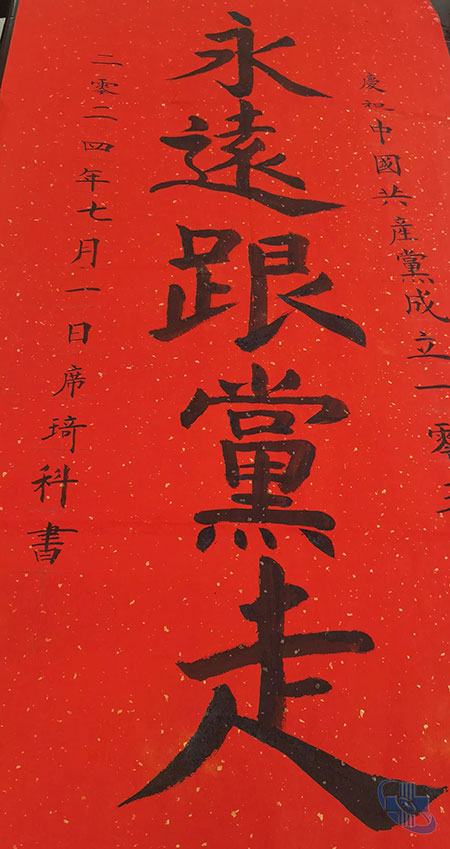 慶祝中國共産黨成立一零三
永遠跟黨走
二零二四年七月一日席琦科書